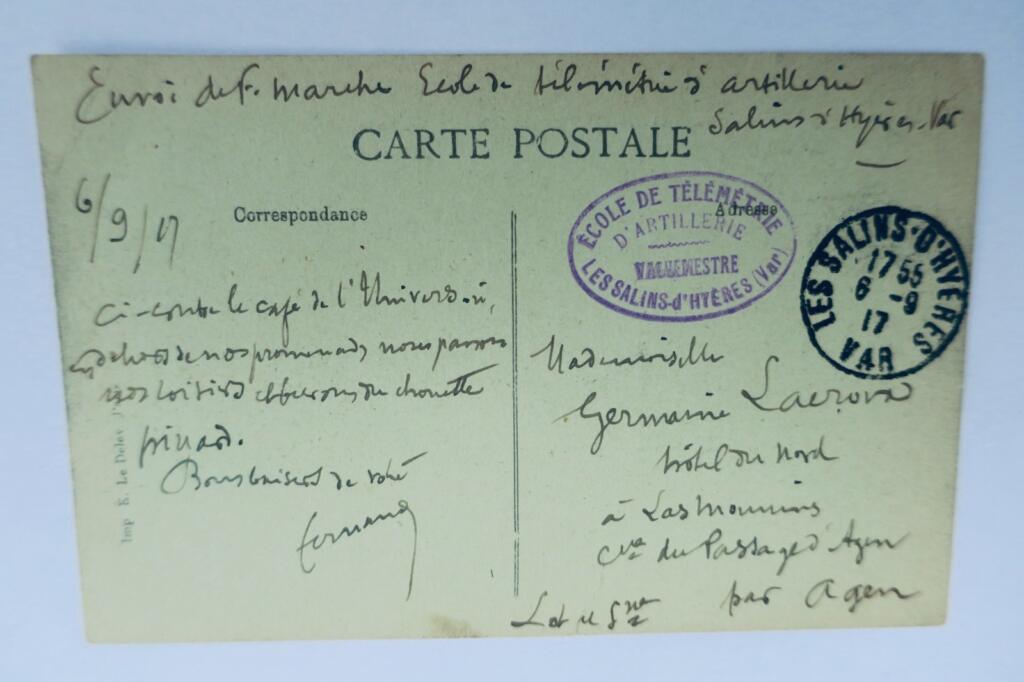 Envoi de F. Marche Ecole de télémétrie d'artillerie
Salins d'Hyères. Var
CARTE POSTALE
6/9/17
Correspondance
Adresse
ÉCOLE DE TÉLÉMÉTRIE
D'ARTILLERIE
VAGUEMESTRE
LES SALINS-d'HYÈRES (Var)
LES SALINS-D'HYÈRES
17 55
6 -9
17
VAR
Ci-contre le café de l'Univers où,
en dehors de nos promenades nous passons
nos loisirs et buvons du chouette
pinard.
Bons baisers de votre
Fernand
Mademoiselle
Germaine
hôtel du Nord
à
Cne du Passage d'Agen
par Agen
Lot et Gne
Imp E. Le Deley